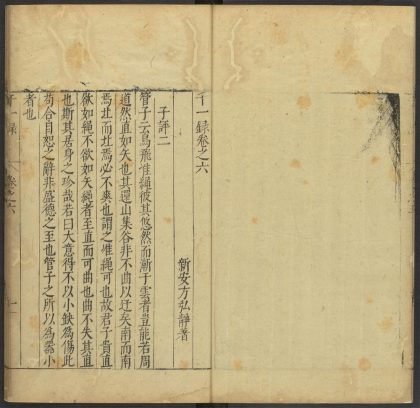 千一錄卷之六
新安方弘靜著
子評二
管子云鳥飛准繩彼其悠然而漸于雲者豈能若周
道然直如矢也其還山集谷非不曲以迂矣南而南
焉北而北焉必不爽也謂之准繩可也故君子貴直
欲如繩不欲如矢繩者至直而可曲也曲不失其直
也斯其居身之珍哉若曰大意得不以小缺為傷此
苟合自恕之辭非盛德之至也管子之所以為器小
者也
千一錄
卷之六
一